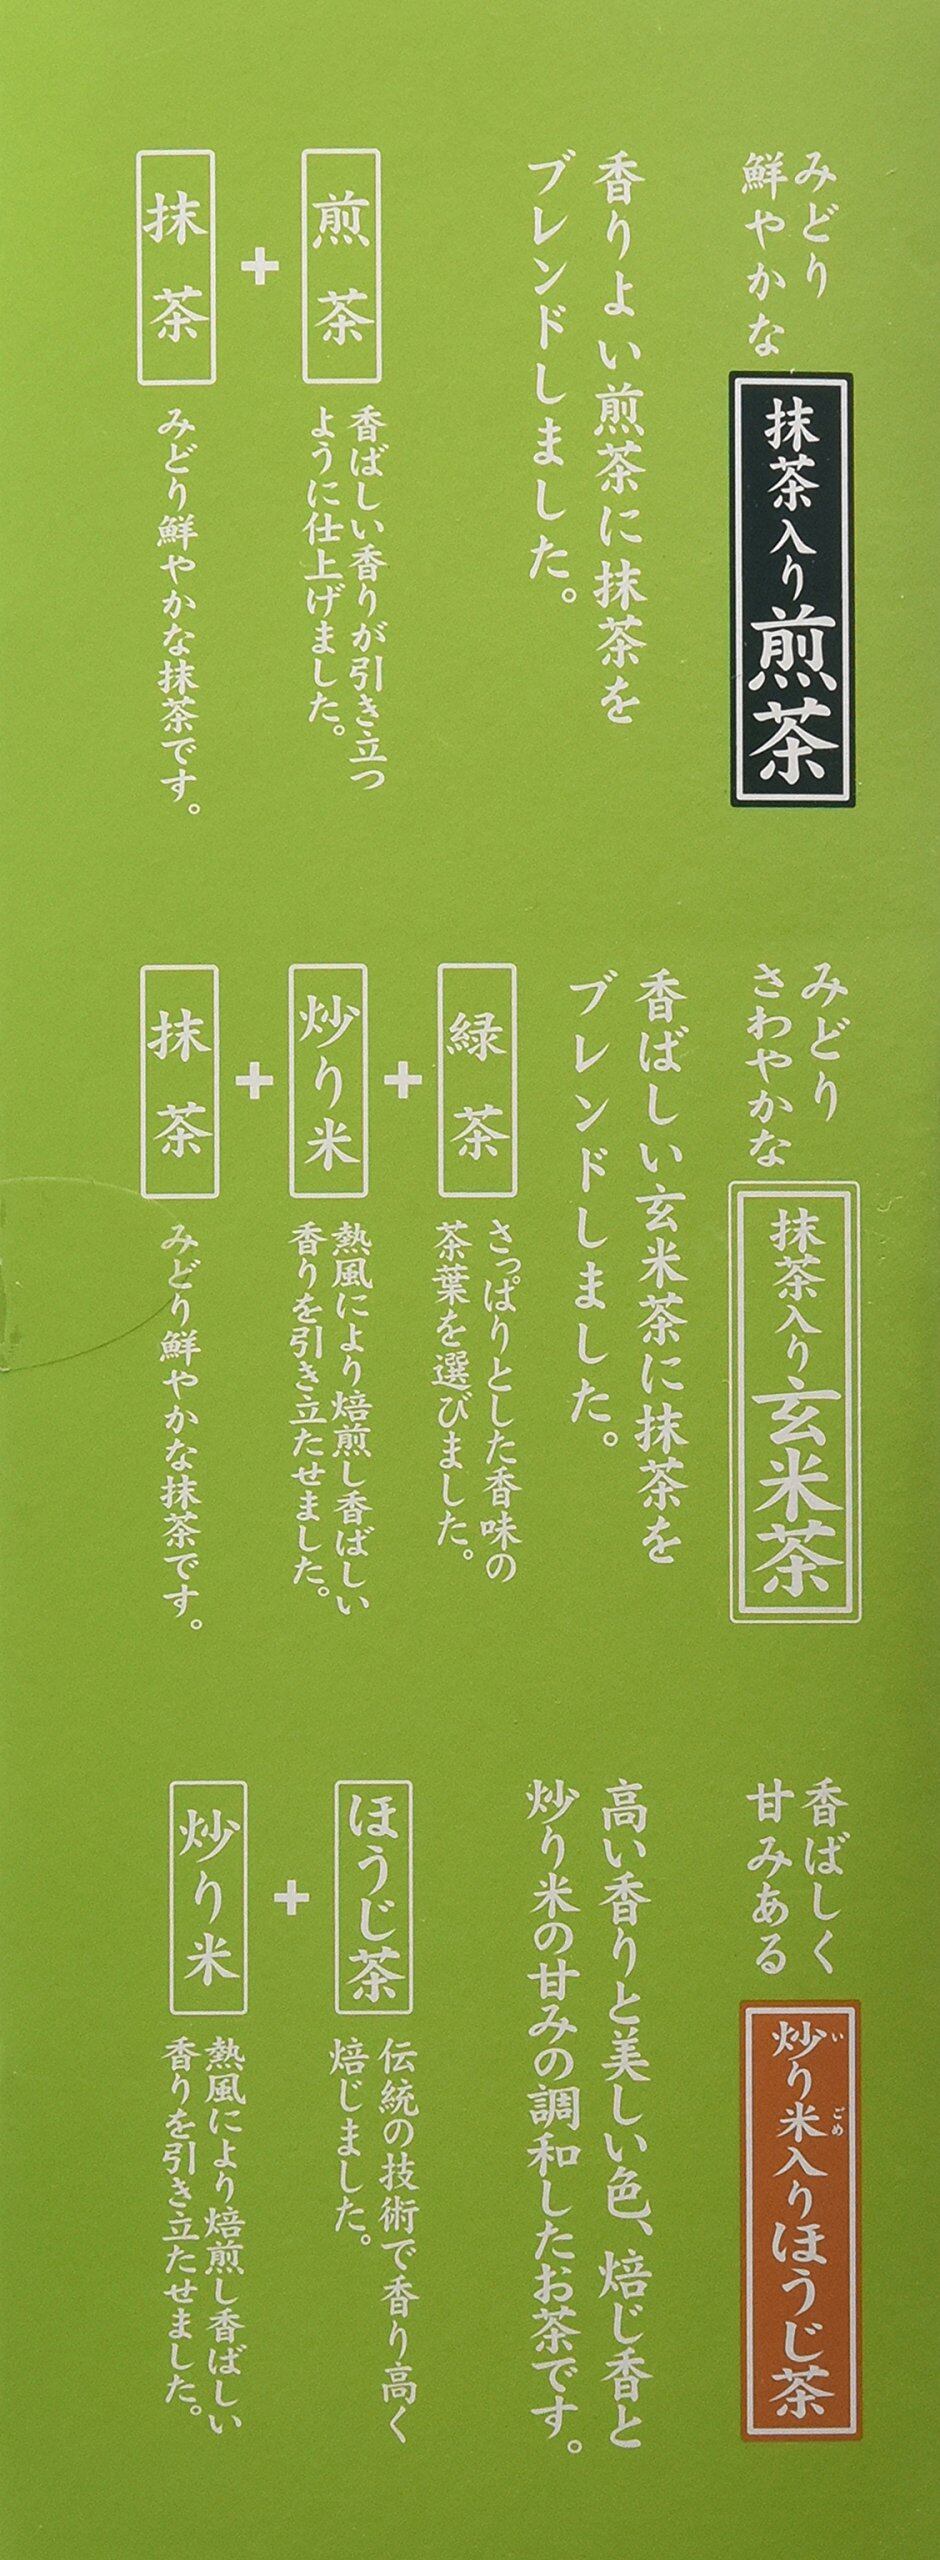 みどり
鮮やかな
抹茶入り煎茶
香りよい煎茶に抹茶を
ブレンドしました。
煎茶
香ばしい香りが引き立つ
ように仕上げました。
+
抹茶
みどり鮮やかな抹茶です。
みどり
さわやかな
抹茶入り玄米茶
香ばしい玄米茶に抹茶を
ブレンドしました。
緑茶
さっぱりとした香味の
茶葉を選びました。
+
炒り米
熱風により焙煎し香ばしい
香りを引き立たせました。
+
抹茶
みどり鮮やかな抹茶です。
香ばしく
甘みある
炒り米入りほうじ茶
い ごめ
高い香りと美しい色、焙じ香と
炒り米の甘みの調和したお茶です。
ほうじ茶
伝統の技術で香り高く
焙じました。
+
炒り米
熱風により焙煎し香ばしい
香りを引き立たせました。